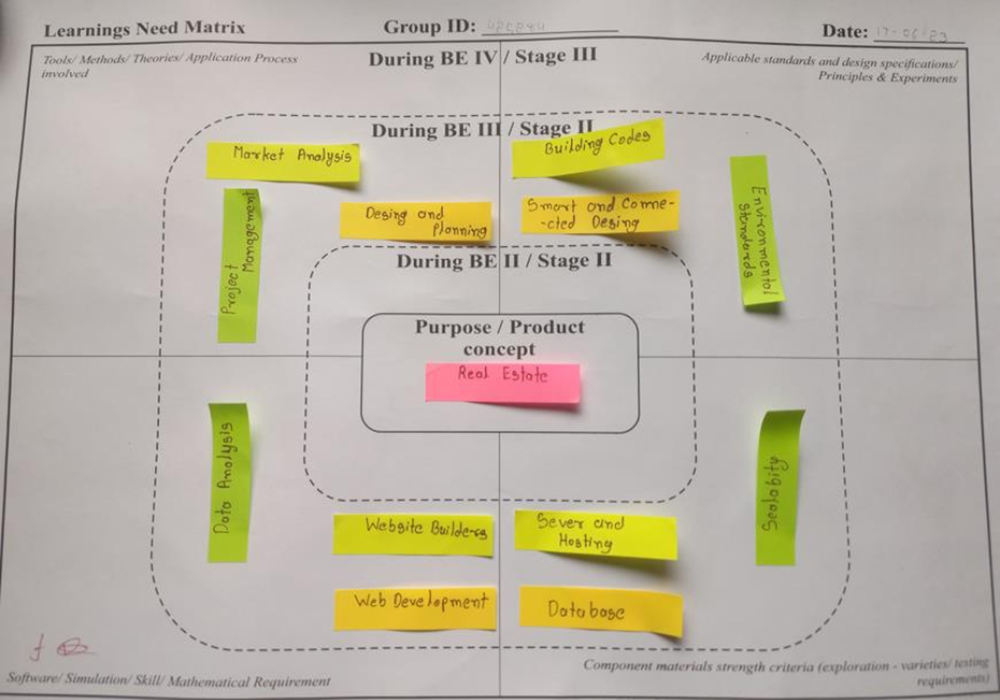 Learnings Need Matrix
Group ID:
Date: 17-06-23
Tools/ Methods/ Theories/ Application Process
involved
During BE IV / Stage III
Applicable standards and design specifications/
Principles & Experiments
During BE III / Stage II
Market Analysis
Building Codes
Project
Management
Desing and
Planning
Smart and Conne-
-cted Desing
Environmental
Standards
During BE II / Stage II
Purpose / Product
concept
Real Estate
Data Analysis
Scalabity
Website Builders
Sever and
Hosting
Web Development
Database
Software/ Simulation/ Skill/ Mathematical Requirement
Component materials strength criteria (exploration - varieties/ testing
requirements)